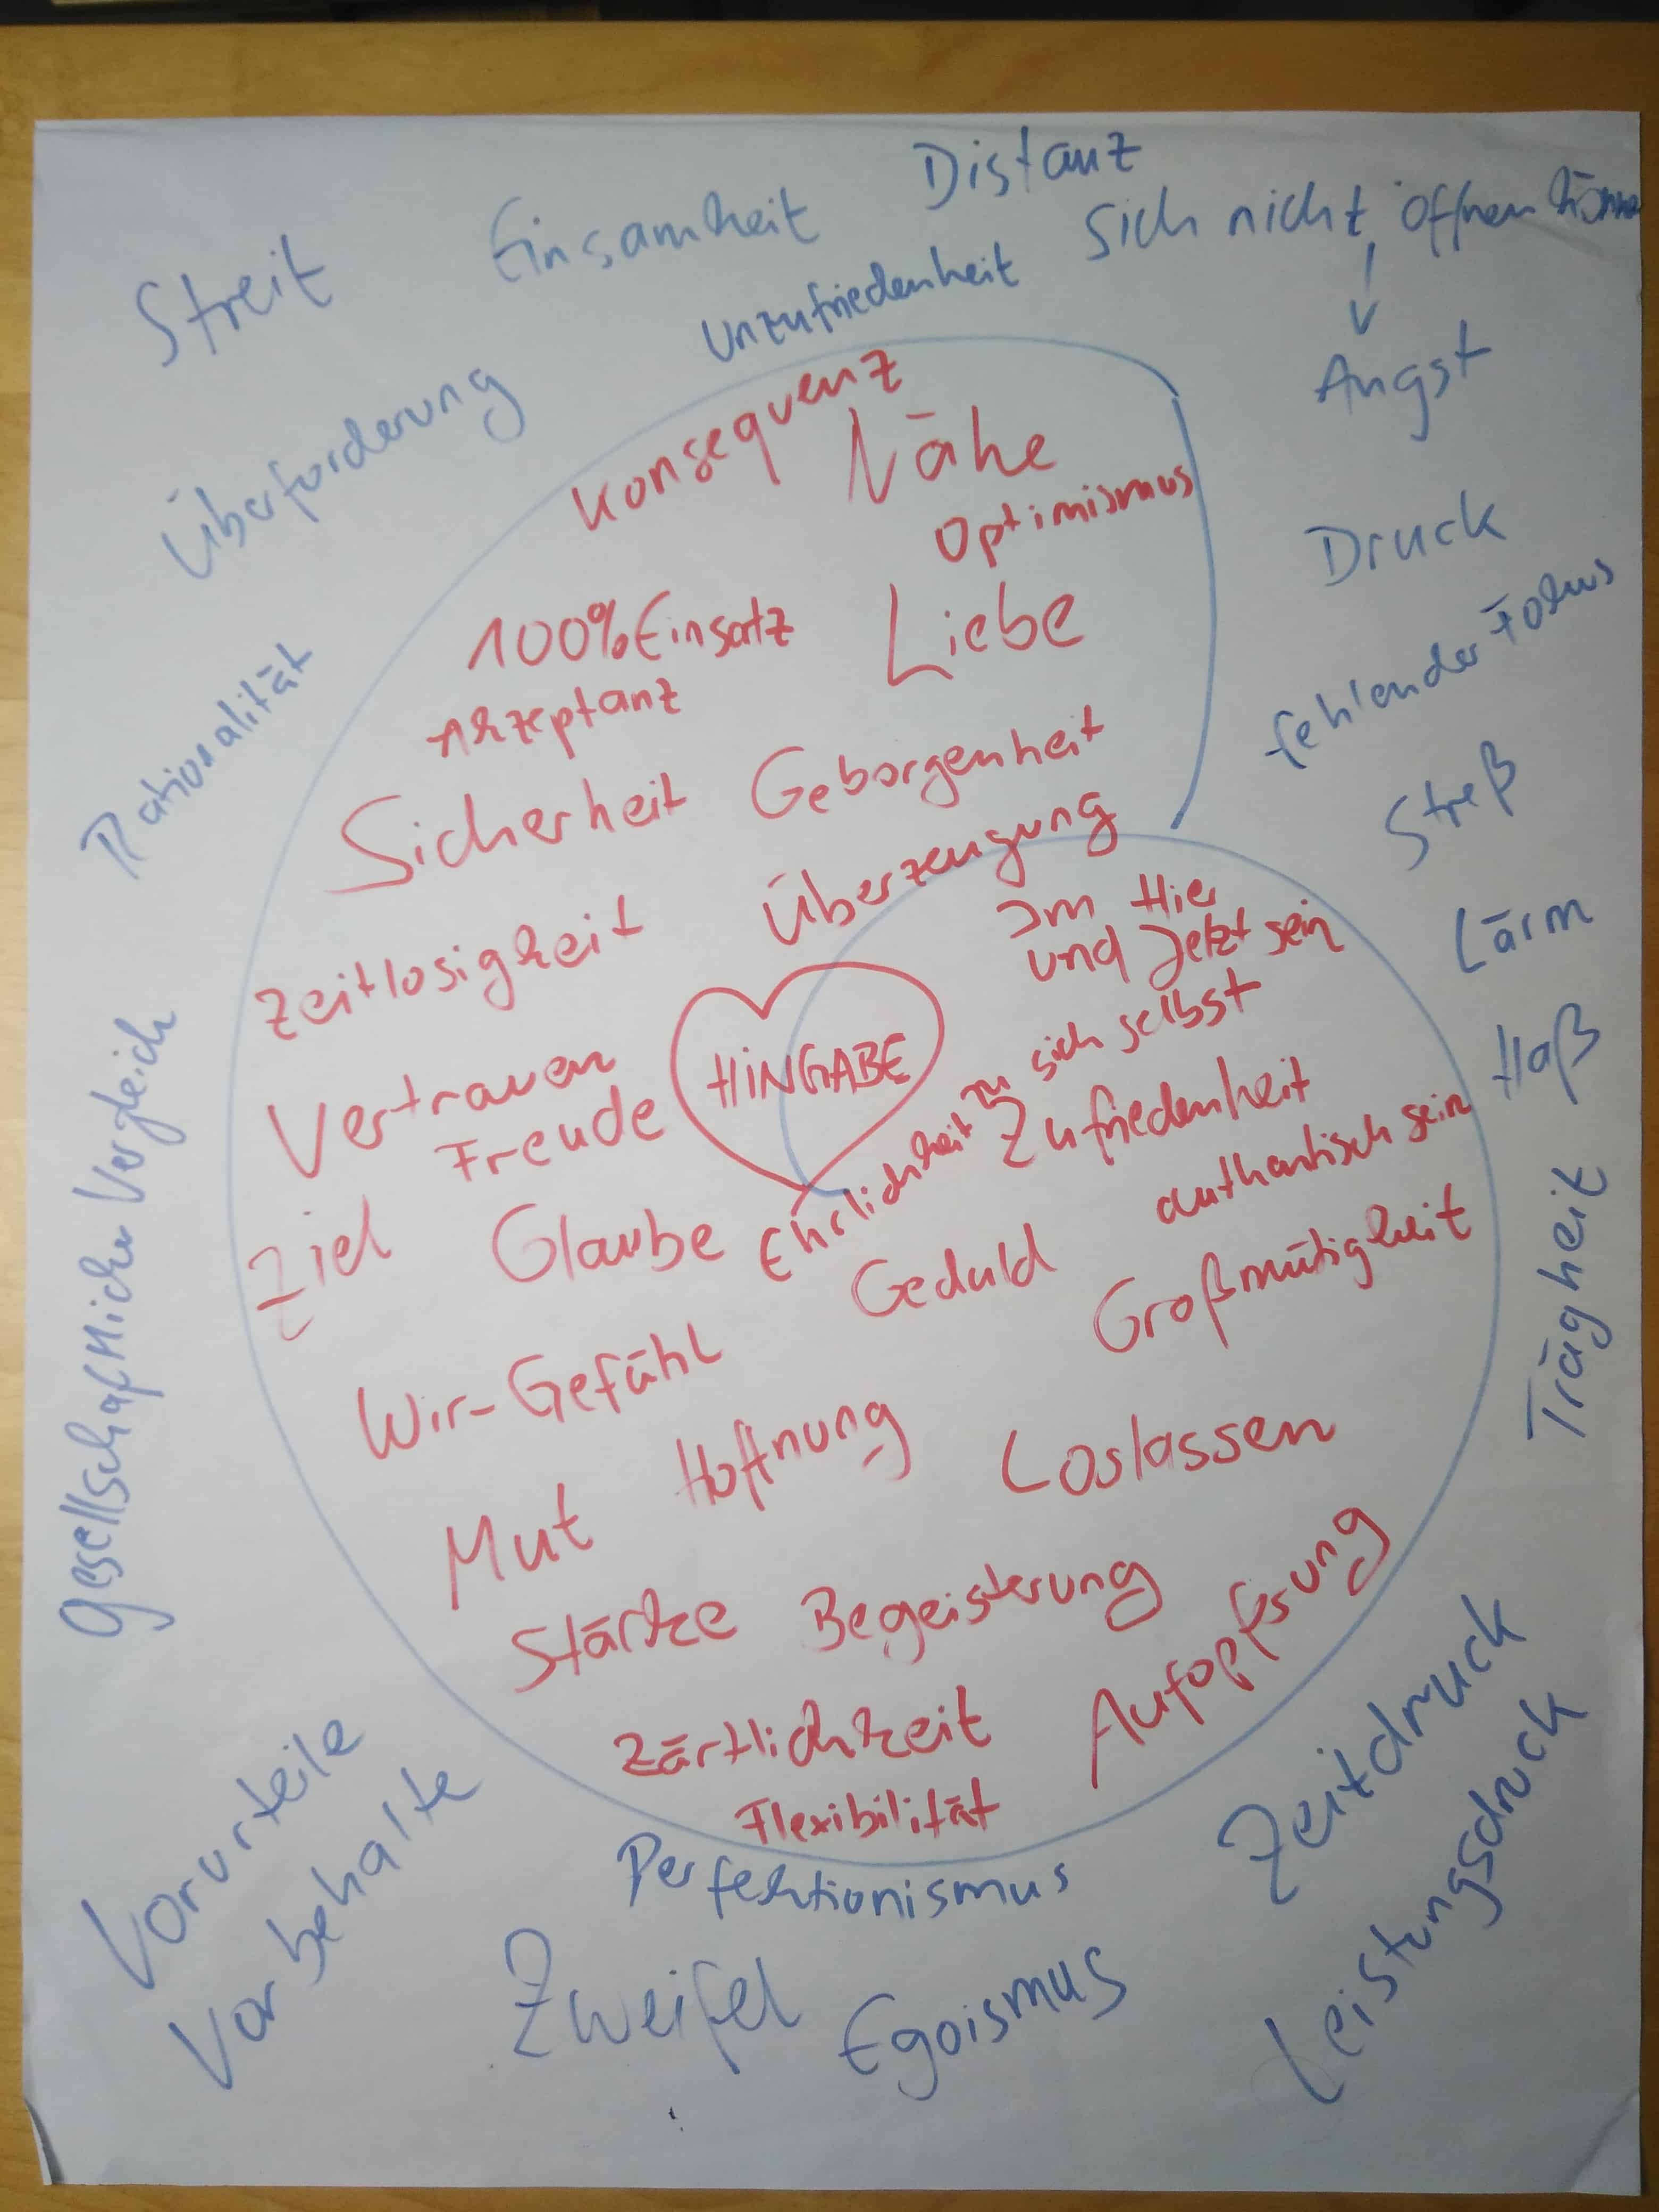 Distanz
Einsamkeit
sich nicht öffnen können
Streit
Unzufriedenheit
Angst
Überforderung
Konsequenz
Nähe
Optimismus
Druck
100% Einsatz
Liebe
fehlender Fokus
Rationalität
Akzeptanz
Sicherheit
Geborgenheit
Streß
Überzeugung
Im Hier
und Jetzt sein
Lärm
Zeitlosigkeit
HINGABE
Ehrlichkeit zu sich selbst
Haß
Vertrauen
Freude
Zufriedenheit
authentisch sein
gesellschaftlicher Vergleich
Ziel
Glaube
Geduld
Großmütigkeit
Trägheit
Wir-Gefühl
Hoffnung
Loslassen
Mut
Stärke
Begeisterung
Aufopfsung
Zärtlichkeit
Flexibilität
Zeitdruck
Leistungsdruck
Vorurteile
Vorbehalte
Perfektionismus
Zweifel
Egoismus